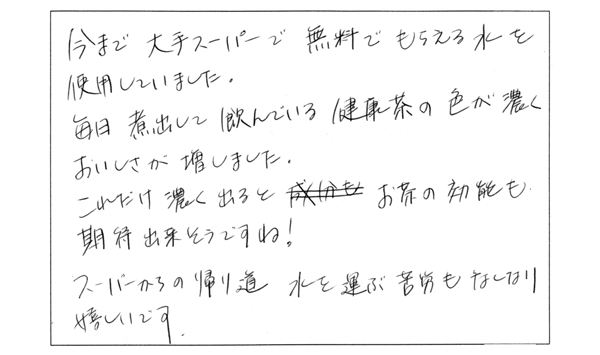 今まで 大手スーパーで 無料でもらえる水を
使用していました。
毎日 煮出して 飲んでいる 健康茶の色が濃く
おいしさが増しました。
これだけ濃く出ると 成分も お茶の効能も
期待出来そうですね!
スーパーからの帰り道 水を運ぶ苦労もなくなり
嬉しいです。